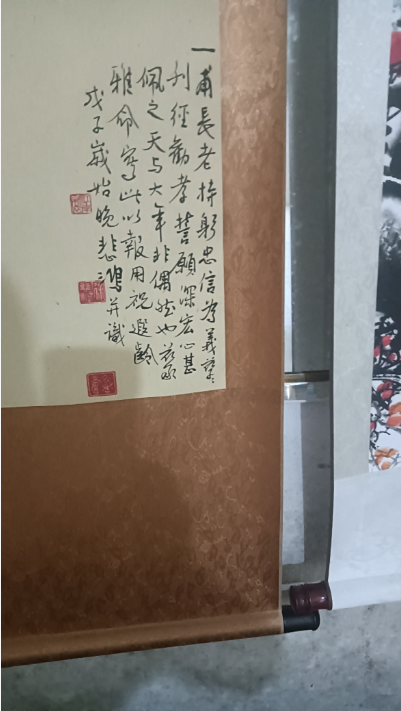 一甫長老持躬忠信為義糵
刊經勸孝誓願深宏心甚
佩之天与大年非偶然也兹承
雅命寫此以報用祝遐齡
戊子嵗始晚悲鴻并識